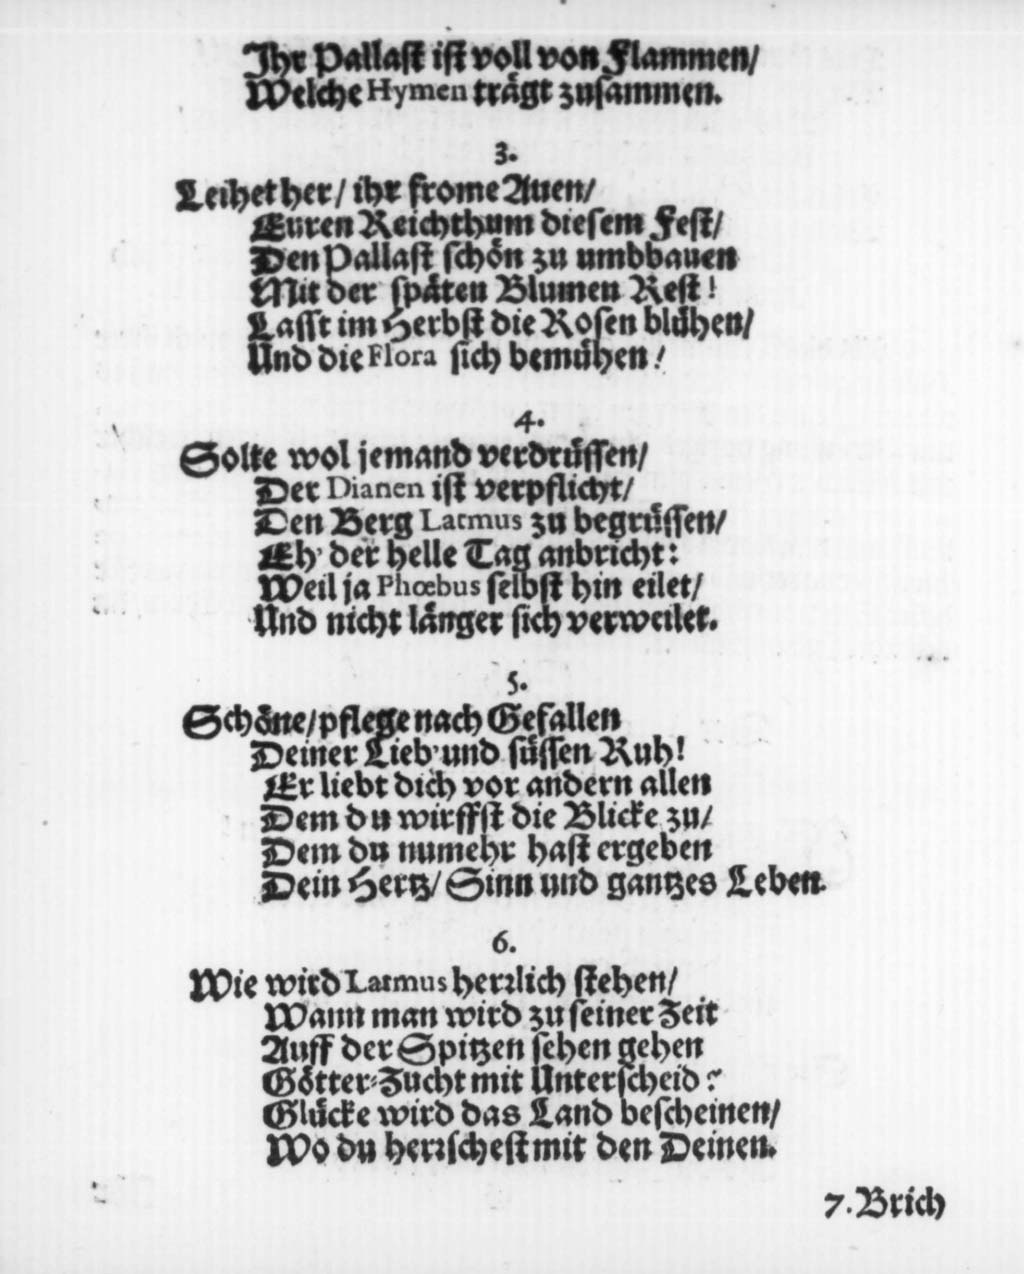 Ihr Pallast ist voll von Flammen/
Welche Hymen trägt zusammen.
3.
Leihet her/ ihr frome Auen/
Euren Reichthum diesem Fest/
Den Pallast schön zu umbbauen
Mit der späten Blumen Rest!
Lasst im Herbst die Rosen blühen/
Und die Flora sich bemühen!
4.
Solte wol jemand verdrüssen/
Der Dianen ist verpflicht/
Den Berg Latmus zu begrüssen/
Eh' der helle Tag anbricht:
Weil ja Phœbus selbst hin eilet/
Und nicht länger sich verweilet.
5.
Schöne/ pflege nach Gefallen
Deiner Lieb' und süssen Ruh!
Er liebt dich vor andern allen
Dem du wirffst die Blicke zu/
Dem du numehr hast ergeben
Dein Hertz/ Sinn und gantzes Leben.
6.
Wie wird Latmus herrlich stehen/
Wann man wird zu seiner Zeit
Auff der Spitzen sehen gehen
Götter-Zucht mit Unterscheid?
Glücke wird das Land bescheinen/
Wo du herrschest mit den Deinen.
7. Brich